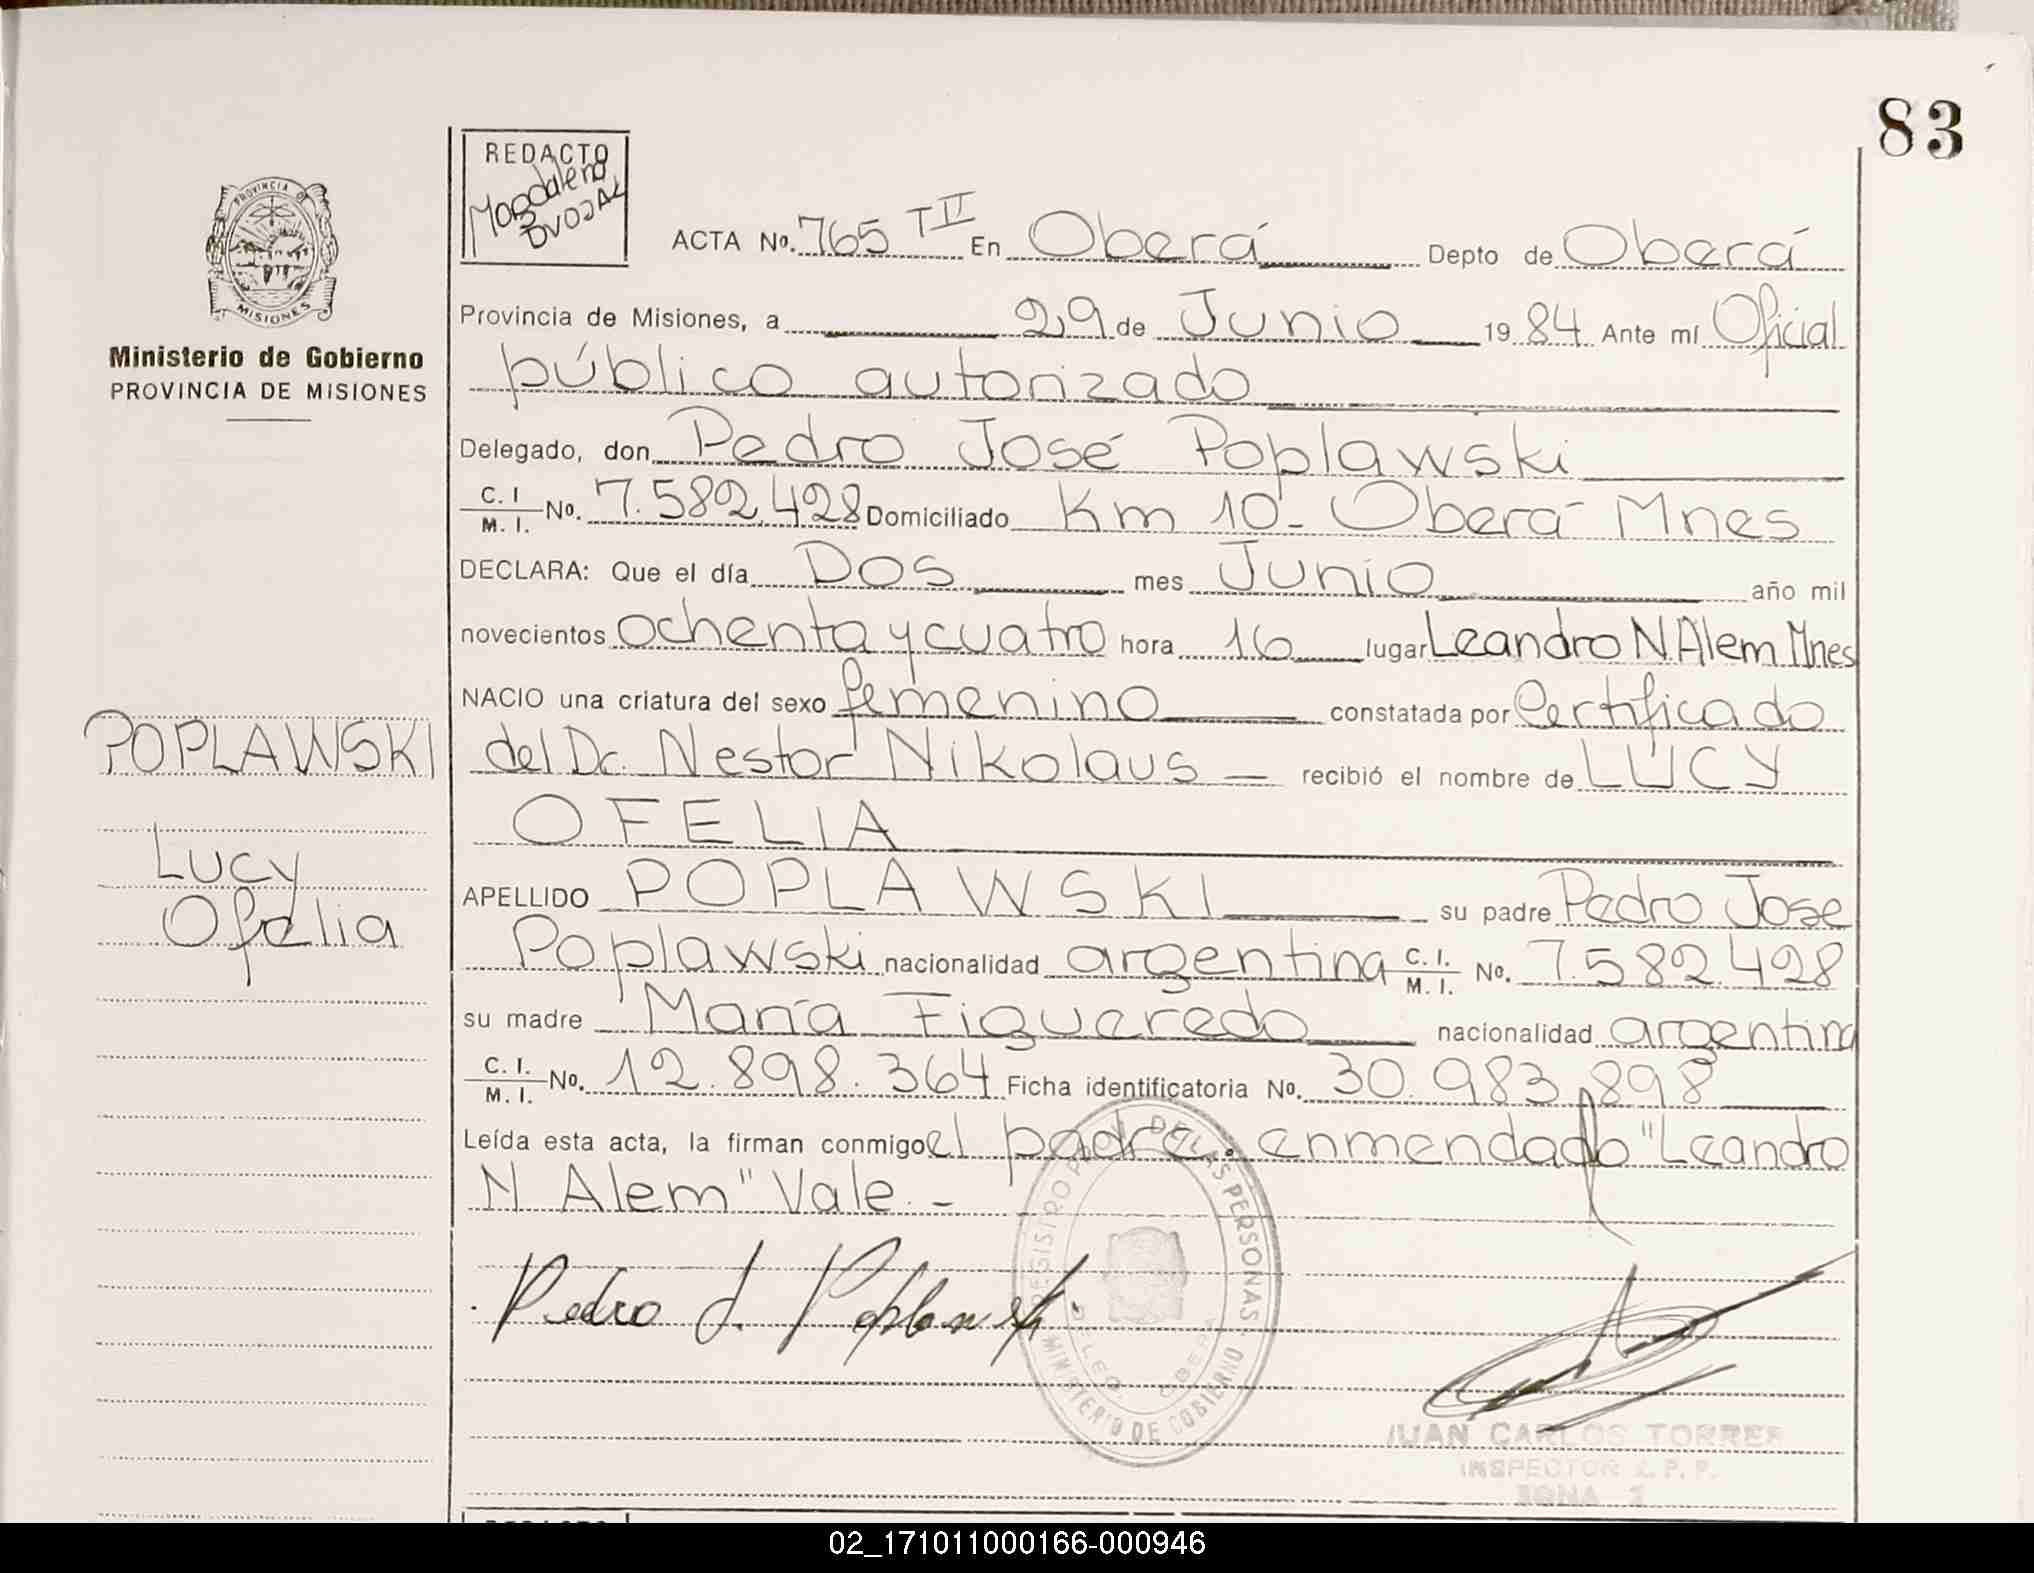 83
REDACTO
Magdalena
DVOJAK
PROVINCIA DE
MISIONES
Ministerio de Gobierno
PROVINCIA DE MISIONES
ACTA No. 765 T II En Oberá Depto de Oberá
Provincia de Misiones, a 29 de Junio 1984 Ante mí Oficial
público autorizado
Delegado, don Pedro José Poplawski
C. I. / M. I. No. 7.582.428 Domiciliado Km 10 - Oberá Mnes
DECLARA: Que el día Dos mes Junio año mil
novecientos ochenta y cuatro hora 16 lugar Leandro N. Alem Mnes
NACIO una criatura del sexo femenino constatada por Certificado
POPLAWSKI
del Dr. Nestor Nikolaus — recibió el nombre de LUCY
OFELIA
Lucy
Ofelia
APELLIDO POPLAWSKI su padre Pedro Jose
Poplawski nacionalidad argentina C. I. / M. I. No. 7.582.428
su madre María Figueredo nacionalidad argentina
C. I. / M. I. No. 12.898.364 Ficha identificatoria No. 30.983.898
Leída esta acta, la firman conmigo el padre. enmendado "Leandro
N Alem" Vale. -
Pedro J. Poplawski
DE LAS PERSONAS
MINISTERIO DE GOBIERNO
DELEG. OBERA
JUAN CARLOS TORRES
INSPECTOR R. P. P.
ZONA 2
REDACTO
02_171011000166-000946